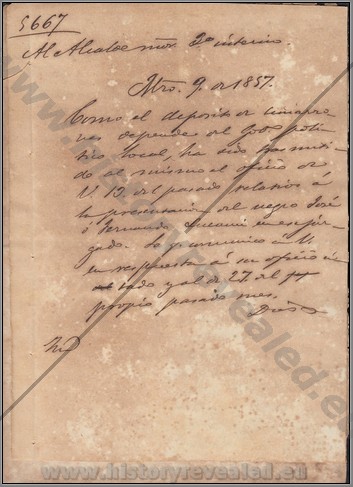 5667
Al Alcalde mor 2o interino.
Mro. 9. de 1857.
Como el deposito de cimarro
nes depende del Gobo polí
tico local, ha sido trasmiti
do al mismo el oficio de
V 13 del pasado relativo á
la presentacion del negro José
ó Fernando en ese juz
gado. Lo q comunico á V.
en respuesta á su oficio
y al de 27. del
propio pasado mes.
Dios
www.historyrevealed.eu